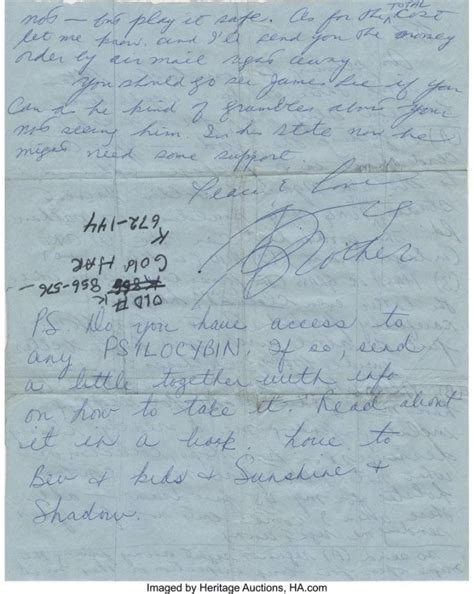 not — but play it safe. As for the TOTAL cost
let me know. and I'll send you the money
order by air mail right away.
You should go see James Lee if you
can as he kind of grumbles about your
not seeing him. In his state now he
might need some support.
Peace & Love
Brother
K
672-144
GOLD HAR
856-576-
OLD
K
PS Do you have access to
any PSILOCYBIN. If so, send
a little together with info
on how to take it. Read about
it in a book. Love to
Bev & kids & Sunshine &
Shadow.
Imaged by Heritage Auctions, HA.com